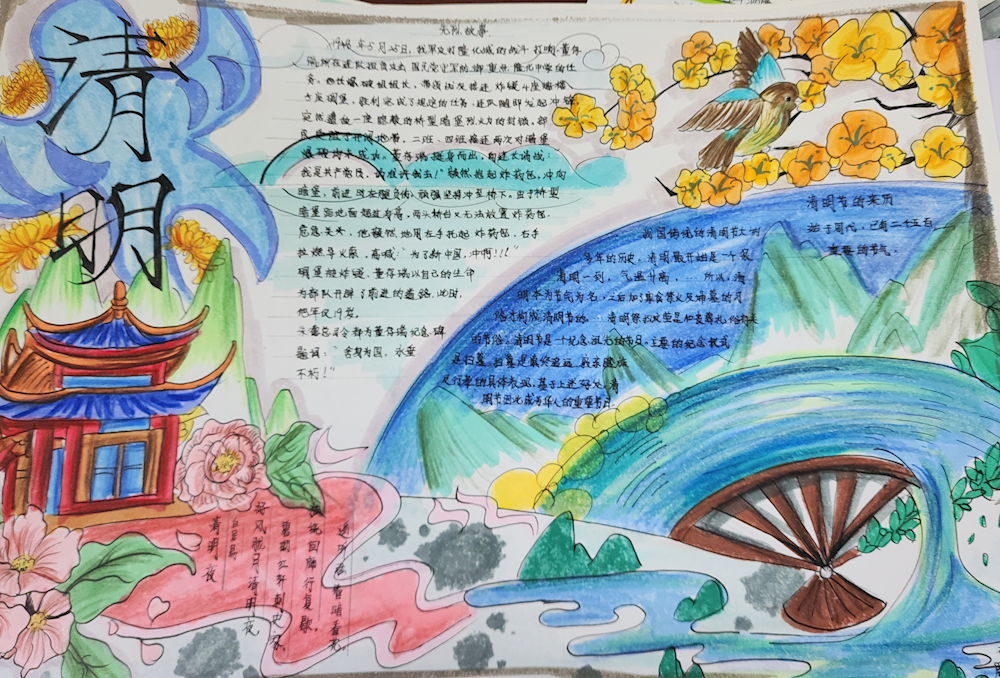 清明
先烈故事
1948年5月25日,我军攻打隆化城的战斗打响。董存
瑞所在连队担负攻击国民党守军防御重点隆化中学的任
务。他任爆破组组长,带领战友接连炸毁4座炮楼、
5座碉堡,胜利完成了规定的任务。连队随即发起冲锋,
突然遭敌一座隐蔽的桥型暗堡猛烈火力的封锁。部
队受阻于开阔地带,二班、四班接连两次对暗堡
爆破均未成功。董存瑞挺身而出,向连长请战:
"我是共产党员,请准许我去!"毅然抱起炸药包,冲向
暗堡,前进时左腿负伤,顽强坚持冲至桥下。由于桥型
暗堡距地面超过身高,两头桥台又无法放置炸药包。
危急关头,他毅然地用左手托起炸药包,右手
拉燃导火索,高喊:"为了新中国,冲啊!!"
碉堡被炸毁,董存瑞以自己的生命
为部队开辟了前进的道路,此时,
他年仅19岁。
朱德总司令都为董存瑞纪念碑
题词:"舍身为国,永垂
不朽!"
清明节的来历
始于周代,已有二千五百
重要的节气
我国传统的清明节大约
多年的历史,清明最开始是一个很
清明一到,气温升高......所以,清
明本为节气名,之后加了寒食禁火及扫墓的习
俗才构成清明节的。
的节俗。清明节是一个纪念祖先的节日。主要的纪念仪式
是扫墓,扫墓是慎终追远、
及行孝的具体表现,基于上述
明节因此成为华人的重要节日。
碧
好风胧月清明夜
白居易
清明夜